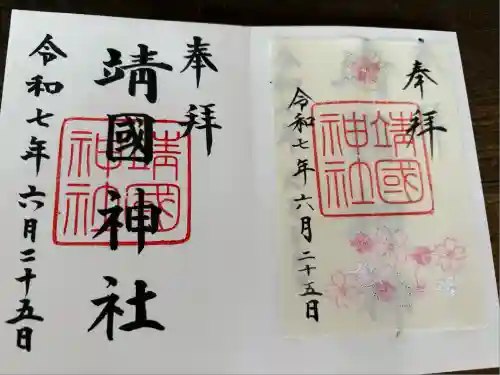 奉拝
靖國神社
靖國神社
令和七年六月二十五日
奉拝
靖國神社
令和七年六月二十五日